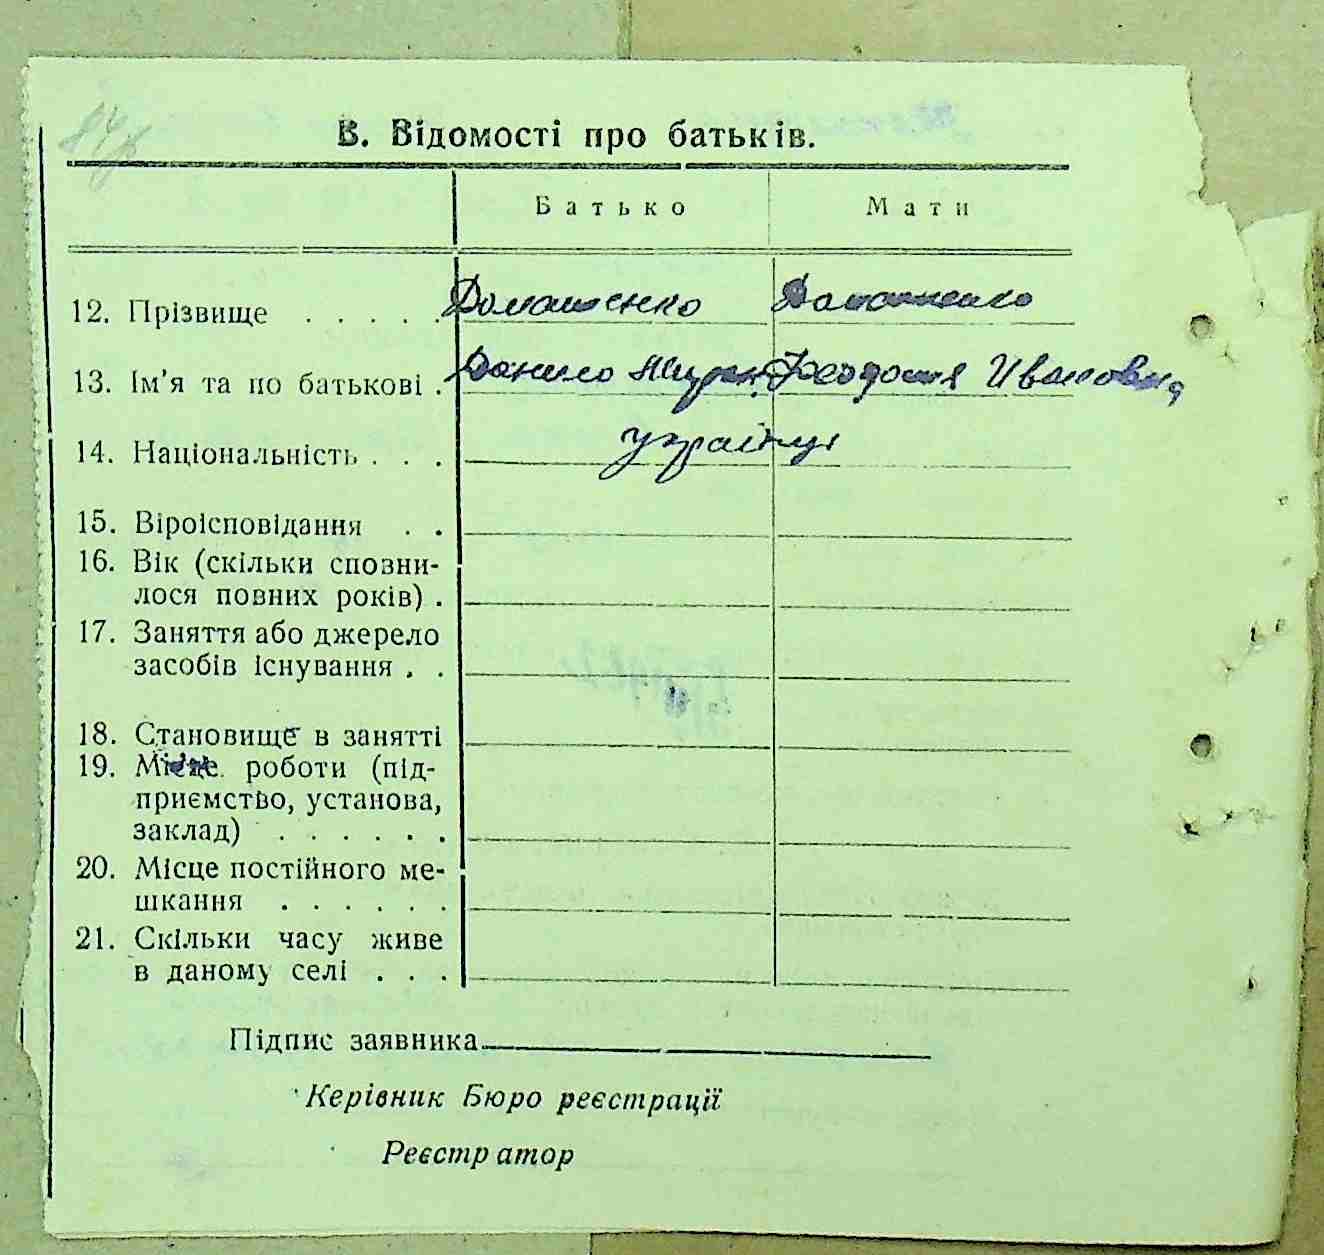 В. Відомості про батьків.
Батько Мати
12. Прізвище . . . . . Домашенко Домашенко
13. Ім'я та по батькові . Данило Феодосия Ивановна
14. Національність . . . українці
15. Віроісповідання . .
16. Вік (скільки сповни-
лося повних років) .
17. Заняття або джерело
засобів існування . .
18. Становище в занятті
19. Місце роботи (під-
приємство, установа,
заклад) . . . . . .
20. Місце постійного ме-
шкання . . . . . .
21. Скільки часу живе
в даному селі . . .
Підпис заявника
Керівник Бюро реєстрації
Реєстратор